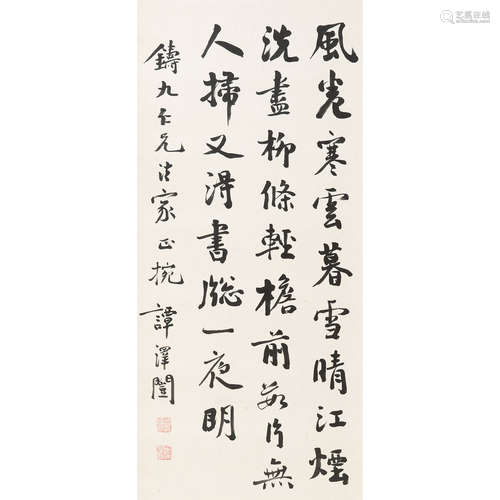 風卷寒雲暮雪晴江煙
洗盡柳條輕檐前數片無
人掃又得書牕一夜明
鑄九仁兄法家正捥 譚澤闓
艺狐在线